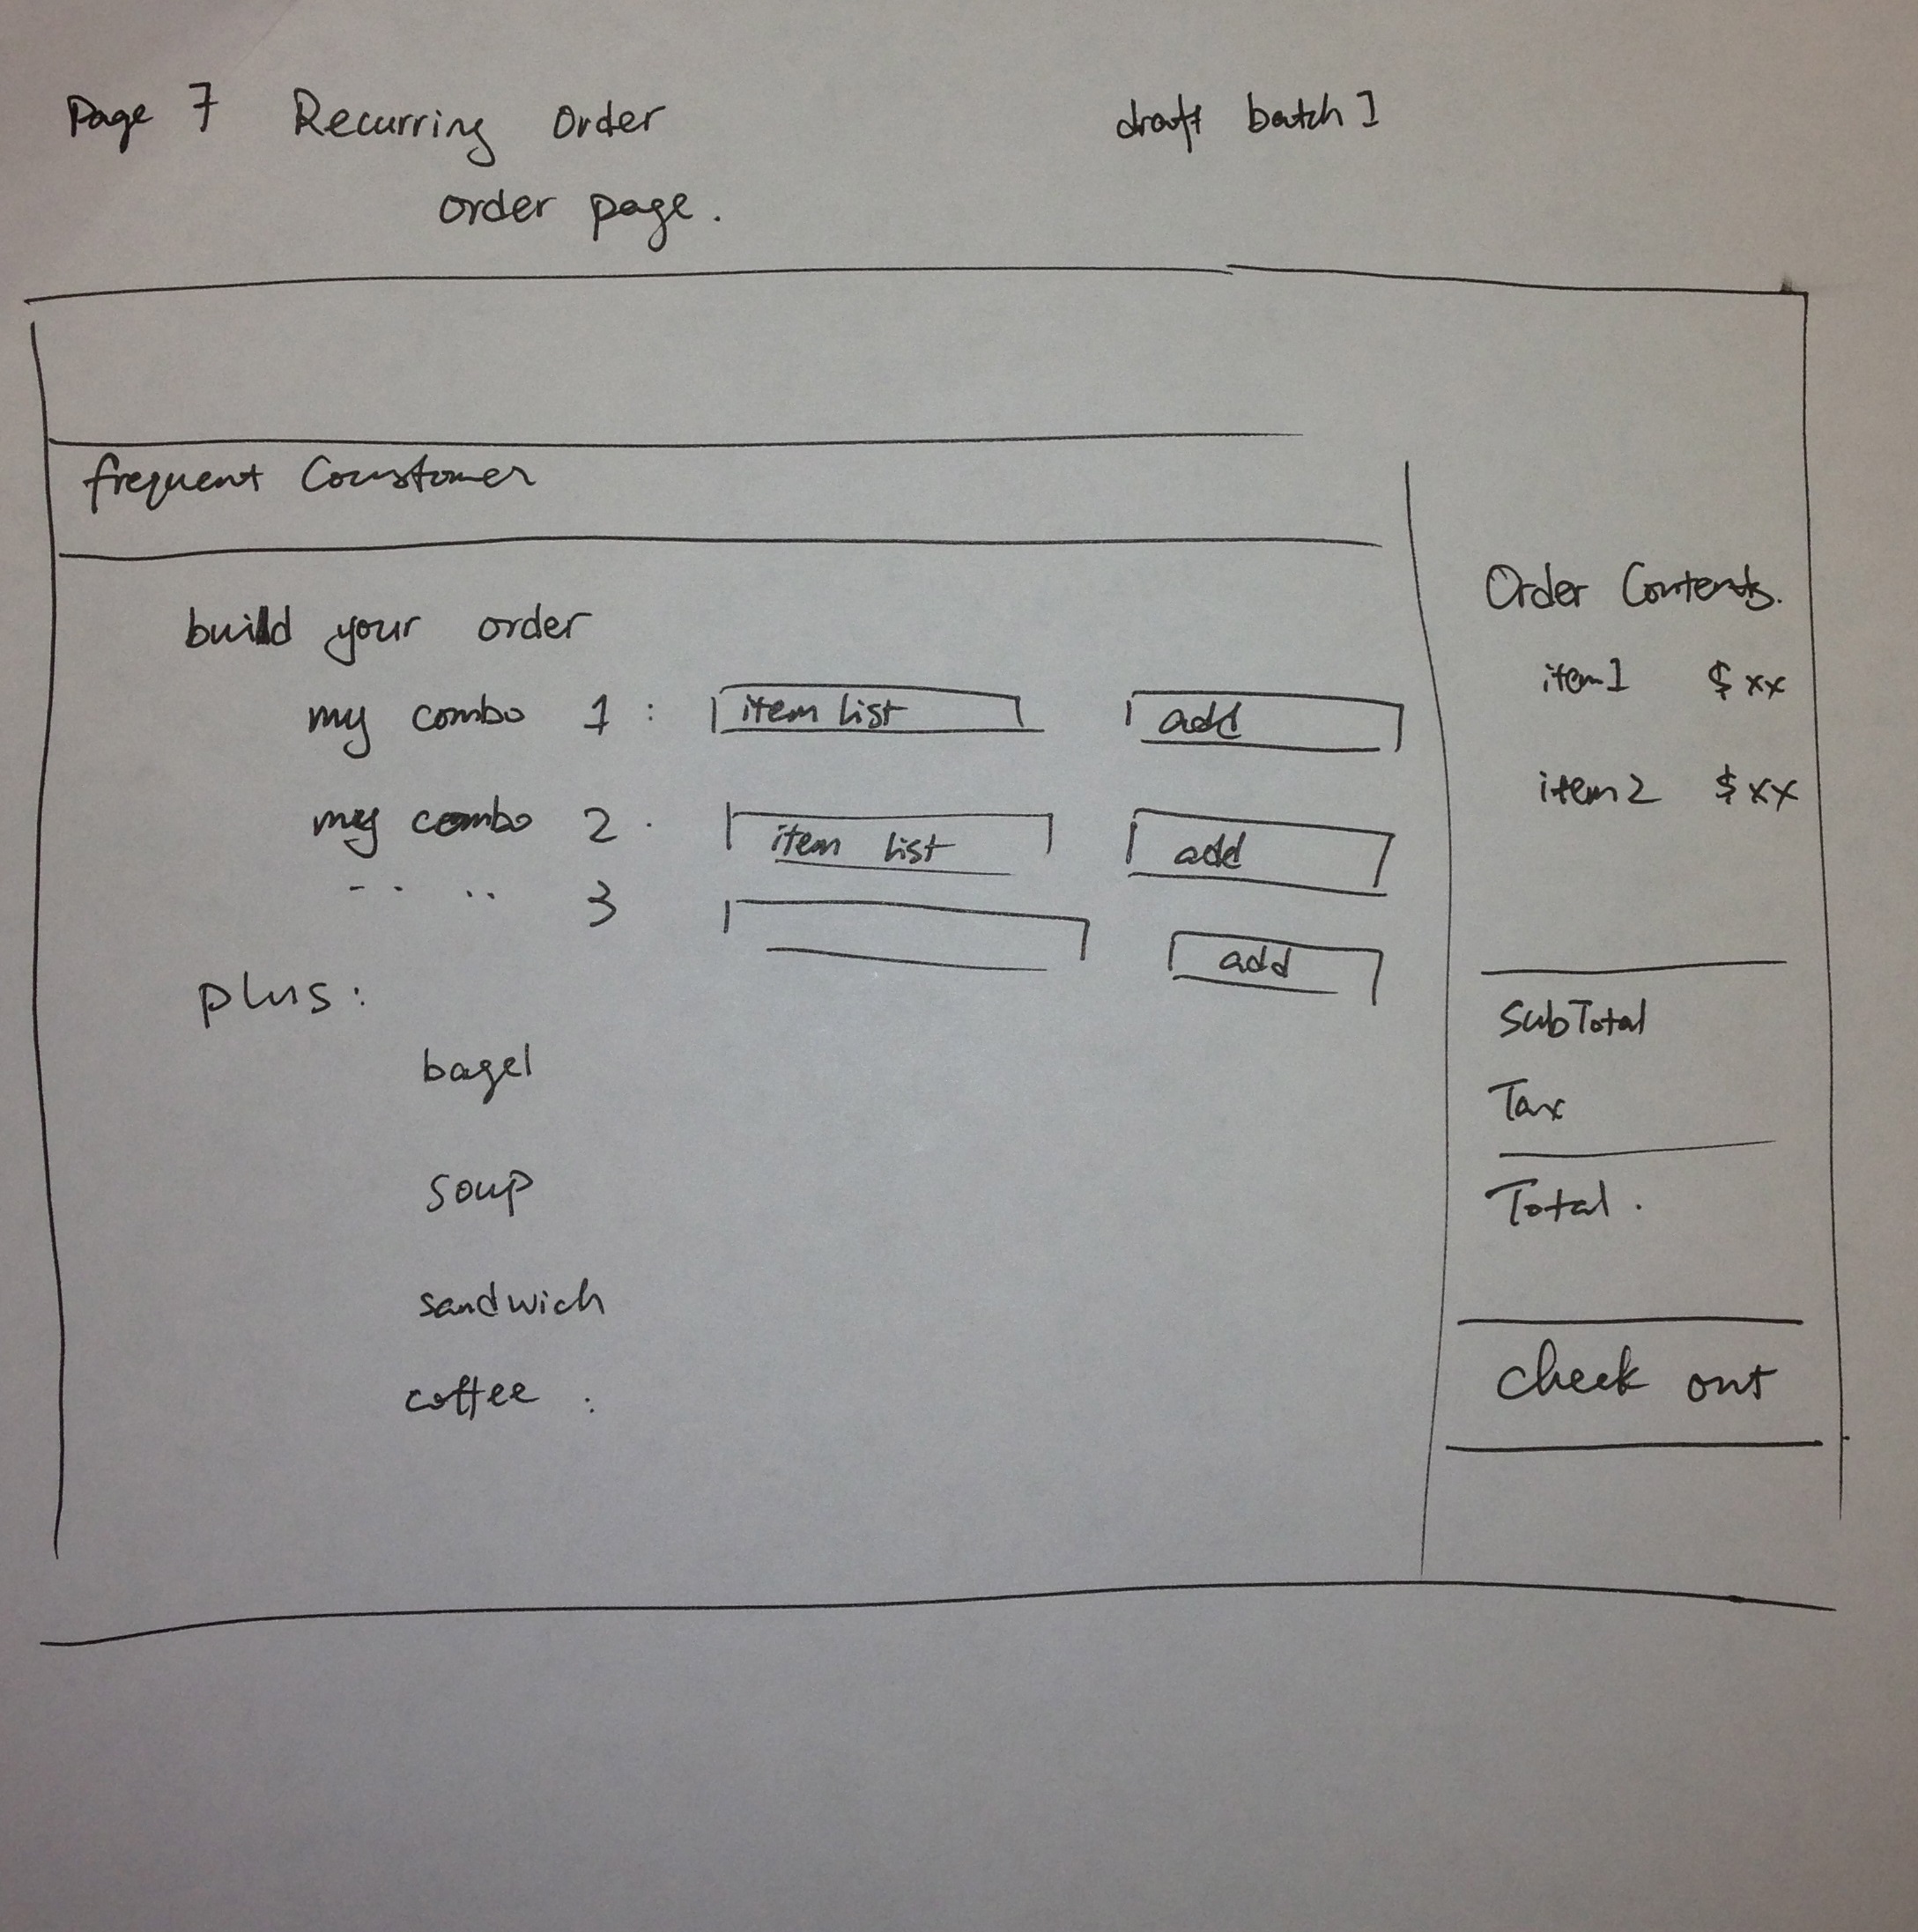 Page 7 Recurring Order
order page.
draft batch 1
frequent Coustomer
build your order
my combo 1 : item list add
my combo 2 . item list add
-- .. 3 add
plus:
bagel
soup
sandwich
coffee :
Order Contents.
item1 $xx
item2 $xx
SubTotal
Tax
Total.
check out